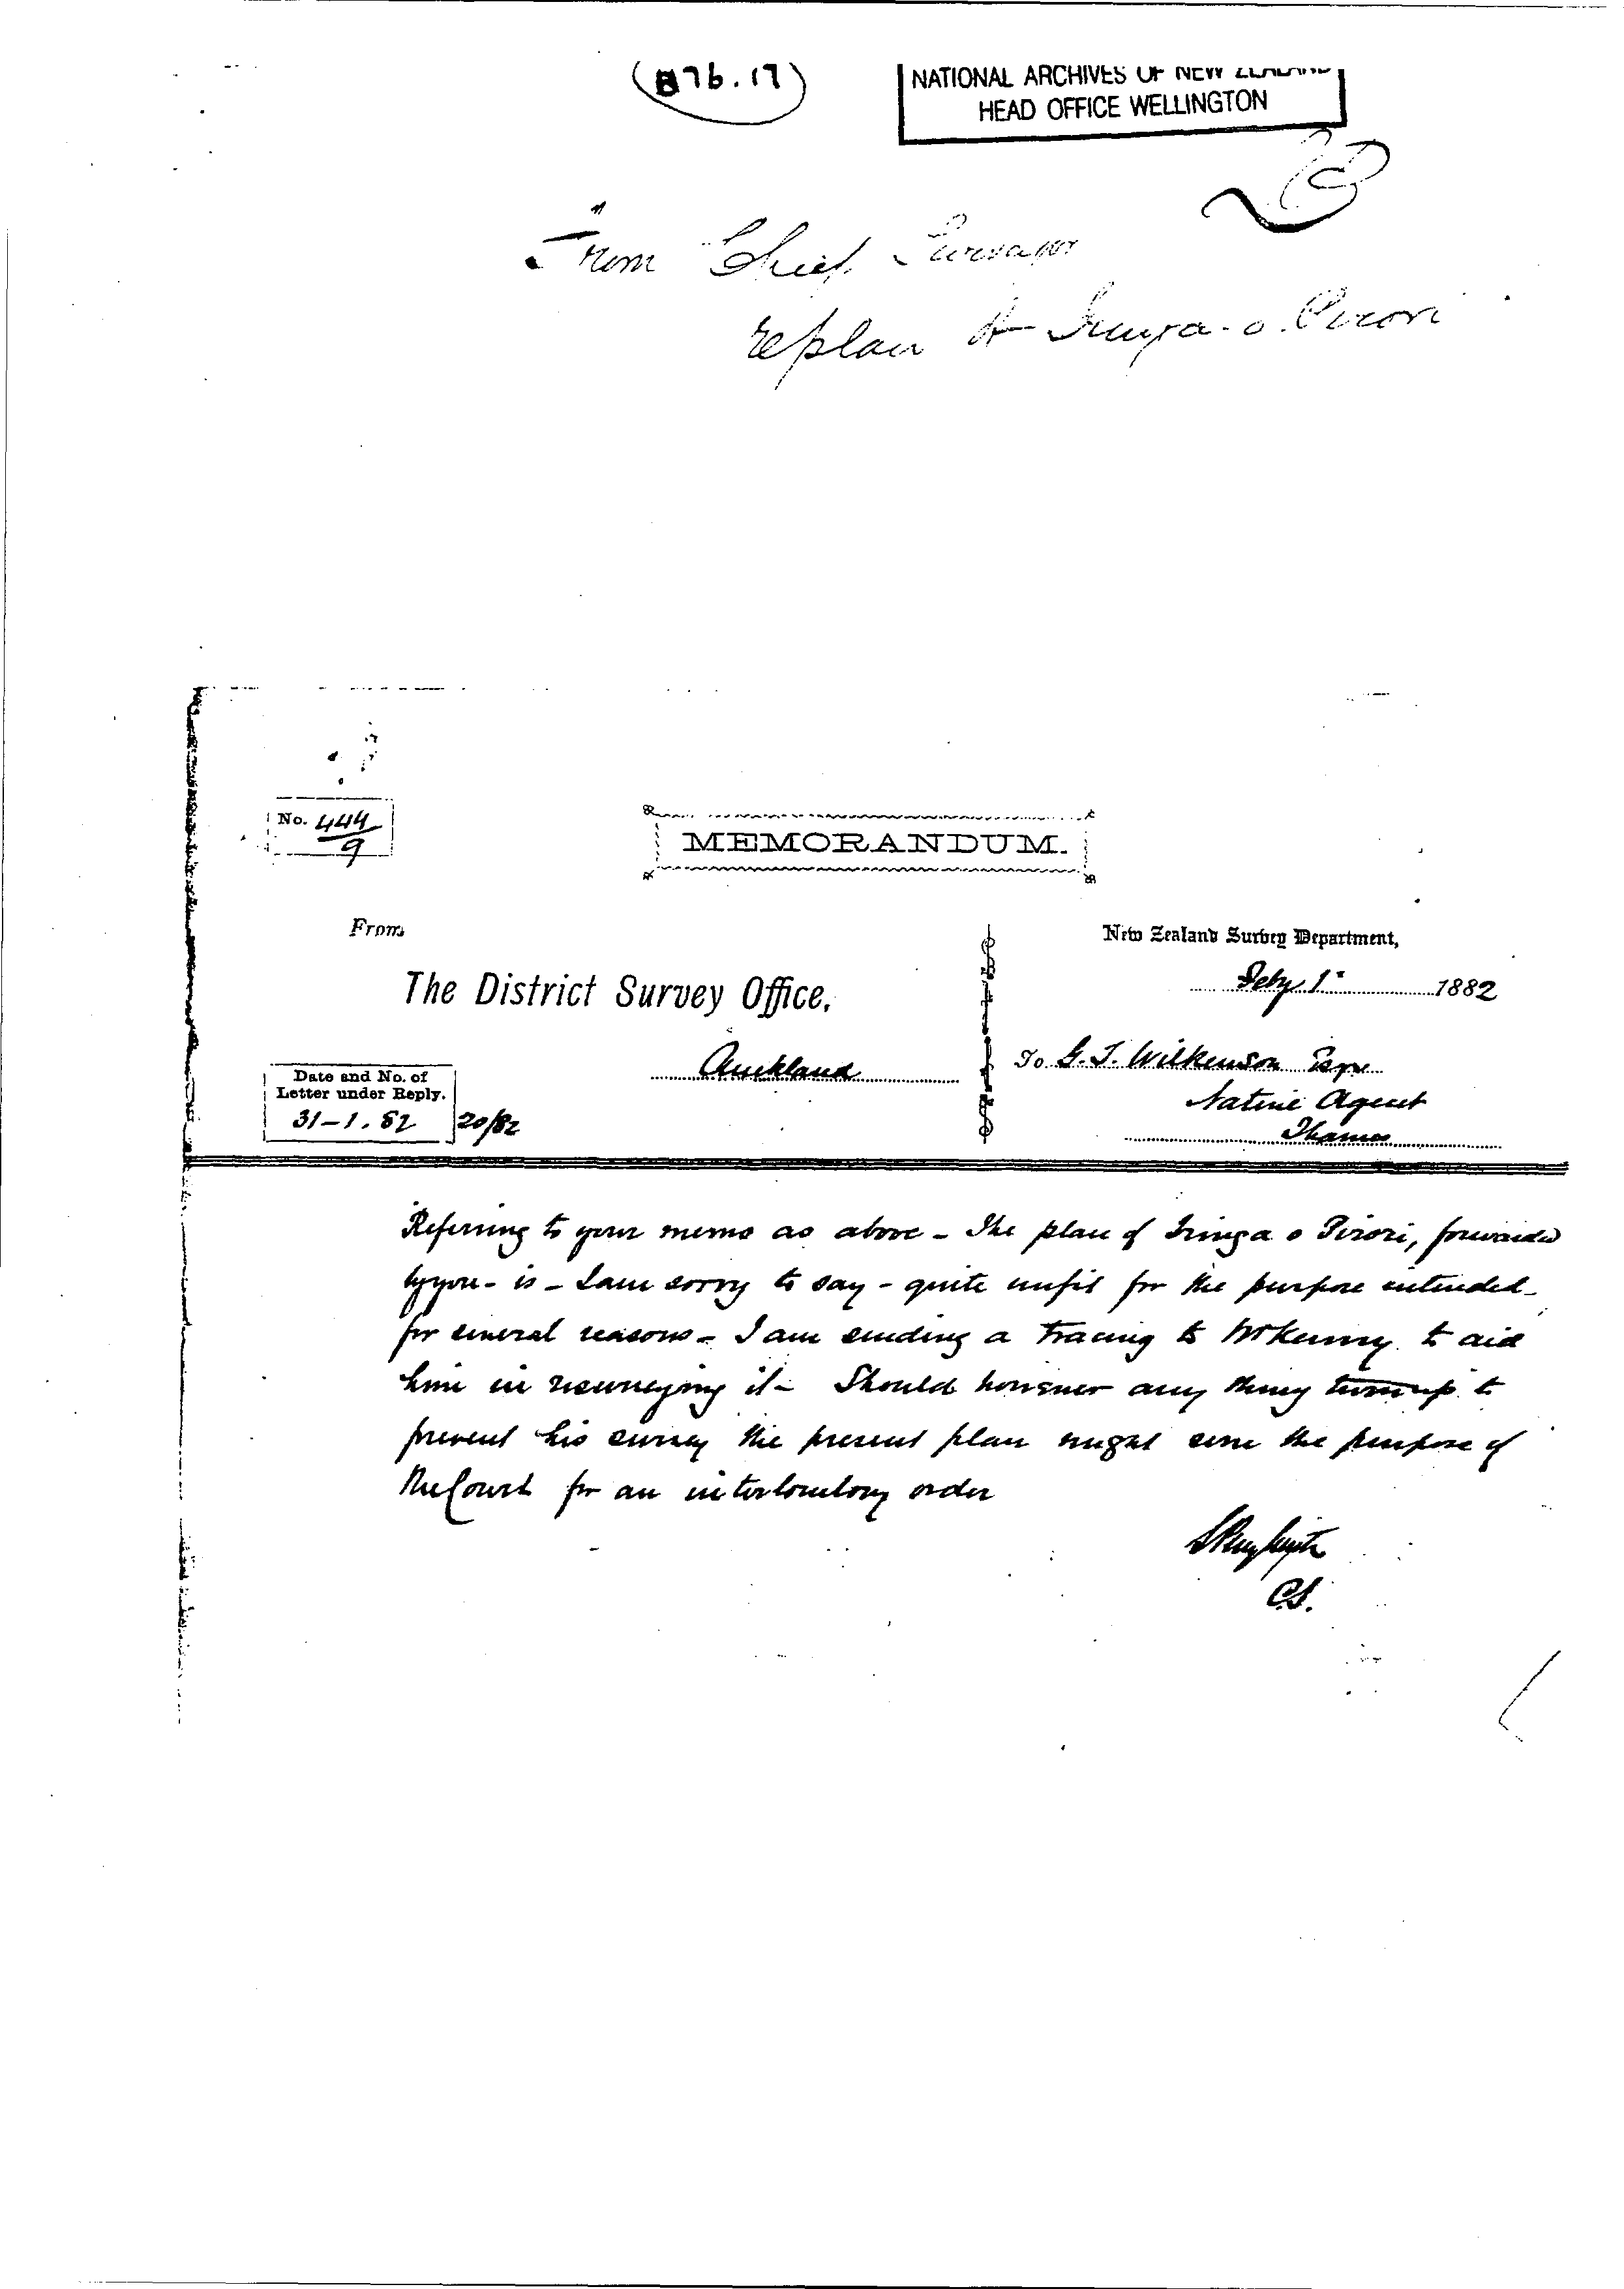 (876.17)
NATIONAL ARCHIVES OF NEW ZEALAND
HEAD OFFICE WELLINGTON
From Chief Surveyor
re plan of o
No. 444
9
MEMORANDUM.
From
New Zealand Survey Department,
The District Survey Office,
Feby. 1 1882
Auckland
To G. T. Wilkinson Esqre
Native Agent
Thames
Date and No. of
Letter under Reply.
31-1.82 20/82
Referring to your memo as above - The plan of o , forwarded
by you - is - I am sorry to say - quite unfit for the purpose intended -
for several reasons - I am sending a tracing to to aid
him in resurveying it - Should however any thing turn up to
prevent his survey the present plan might serve the purpose of
the Court for an interlocutory order
S Percy Smith
CS.